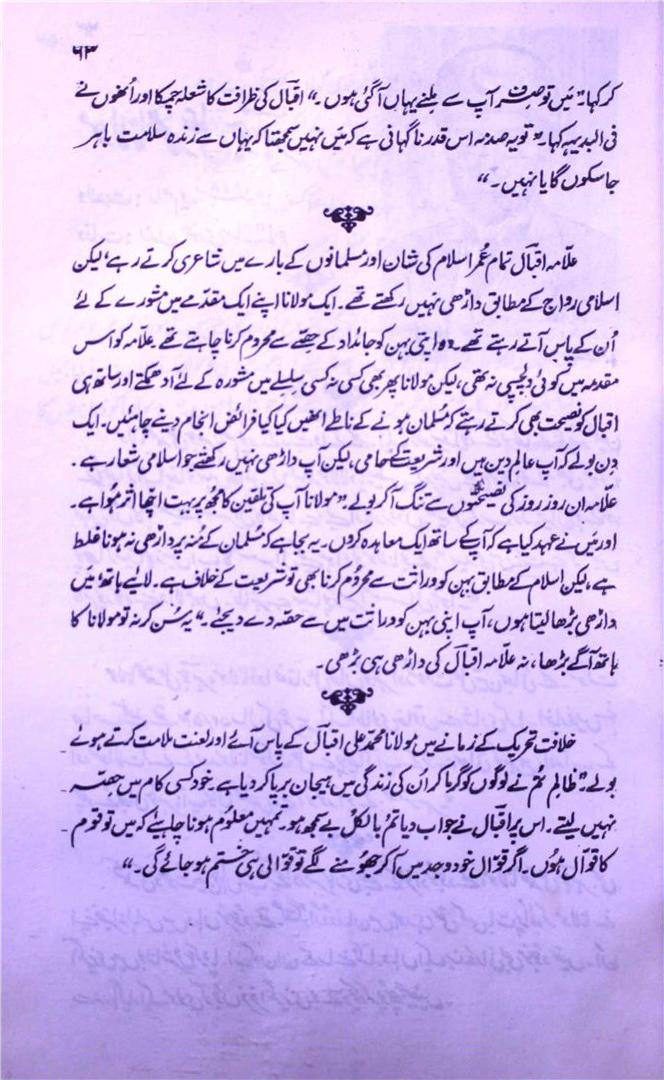 ۶۳
کر کہا۔" مَیں تو صرف آپ سے ملنے یہاں آ گئی ہوں۔" اقبالؔ کی ظرافت کا شعلہ چمکا اور اُنھوں نے
فی البدیہہ کہا۔" تو یہ صدمہ اس قدر ناگہانی ہے کہ مَیں نہیں سمجھتا کہ یہاں سے زندہ سلامت باہر
جا سکوں گا یا نہیں۔"
علّامہ اقبالؔ تمام عُمر اسلام کی شان اور مُسلمانوں کے بارے میں شاعری کرتے رہے، لیکن
اسلامی رواج کے مطابق داڑھی نہیں رکھتے تھے۔ ایک مولانا اپنے ایک مقدّمے میں مشورے کے لئے
اُن کے پاس آتے رہتے تھے۔ وہ اپنی بہن کو جائداد کے حِصّے سے محروم کرنا چاہتے تھے۔ علّامہ کو اس
مقدمہ میں کوئی دلچسپی نہ تھی، لیکن مولانا پھر بھی کسی نہ کسی سلسلے میں مشورہ کے لئے آ دھمکتے اور ساتھ ہی
اقبال کو نصیحت بھی کرتے رہتے کہ مُسلمان ہونے کے ناطے انھیں کیا کیا فرائض انجام دینے چاہئیں۔ ایک
دِن بولے کہ آپ عالمِ دین ہیں اور شریعت کے حامی، لیکن آپ داڑھی نہیں رکھتے جو اسلامی شعار ہے۔
علّامہ ان روز روز کی نصیحتوں سے تنگ آ کر بولے۔" مولانا آپ کی تلقین کا مجھ پر بہت اچھا اثر ہوا ہے۔
اور مَیں نے عہد کیا ہے کہ آپ کے ساتھ ایک معاہدہ کروں۔ یہ بجا ہے کہ مُسلمان کے مُنہ پر داڑھی نہ ہونا غلط
ہے، لیکن اسلام کے مطابق بہن کو وراثت سے محروم کرنا بھی تو شریعت کے خلاف ہے۔ لائیے ہاتھ میں
داڑھی بڑھا لیتا ہوں، آپ اپنی بہن کو وراثت میں سے حصّہ دے دیجئے۔" یہ سُن کر نہ تو مولانا کا
ہاتھ آگے بڑھا، نہ علّامہ اقبالؔ کی داڑھی ہی بڑھی۔
خلافت تحریک کے زمانے میں مولانا محمّد علی اقبالؔ کے پاس آئے اور لعنت ملامت کرتے ہوئے
بولے۔" ظالم تُم نے لوگوں کو گرما کر اُن کی زندگی میں ہیجان برپا کر دیا ہے۔ خود کسی کام میں حصّہ
نہیں لیتے۔ اس پر اقبالؔ نے جواب دیا تُم بالکل بے سمجھ ہو۔ تمہیں معلوم ہونا چاہیئے کہ میں تو قوم
کا قوّال ہوں۔ اگر قوّال خود وجد میں آ کر جھومنے لگے تو قوّالی ہی ختم ہو جائے گی۔"